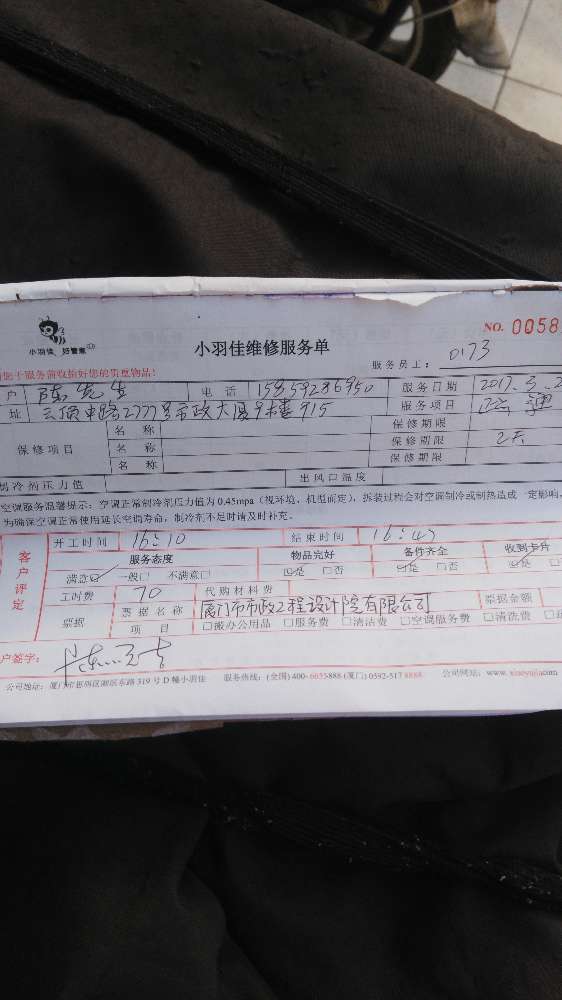 小羽佳 好管家
小羽佳维修服务单
NO. 0058
服务员工: 0173
您于服务前收拾好您的贵重物品!
户 陈先生 电话 15859286950 服务日期 2017.3.2
址 云顶中路2777号市政大厦9楼915 服务项目 疏通
保修项目 名称 保修期限
名称 保修期限 2天
名称 保修期限
制冷剂压力值 出风口温度
空调服务温馨提示: 空调正常制冷剂压力值为 0.45mpa (视环境、机型而定), 拆装过程会对空调制冷或制热造成一定影响,
为确保空调正常使用延长空调寿命, 制冷剂不足时请及时补充。
客户评定 开工时间 16:10 结束时间 16:47
服务态度 物品完好 备件齐全 收到卡片
满意☑ 一般□ 不满意□ ☑是 □否 ☑是 □否 ☑是
工时费 70 代购材料费
票据 票据名称 厦门市市政工程设计院有限公司 票据金额
项目 □搬办公用品 □服务费 □清洁费 □空调服务费 □清洗费
户签字:
公司地址: 厦门市思明区湖滨东路 319 号 D 幢小羽佳 服务热线: (全国) 400-6655888 (厦门) 0592-517 8888 公司网站: www.xiaoyujia.com